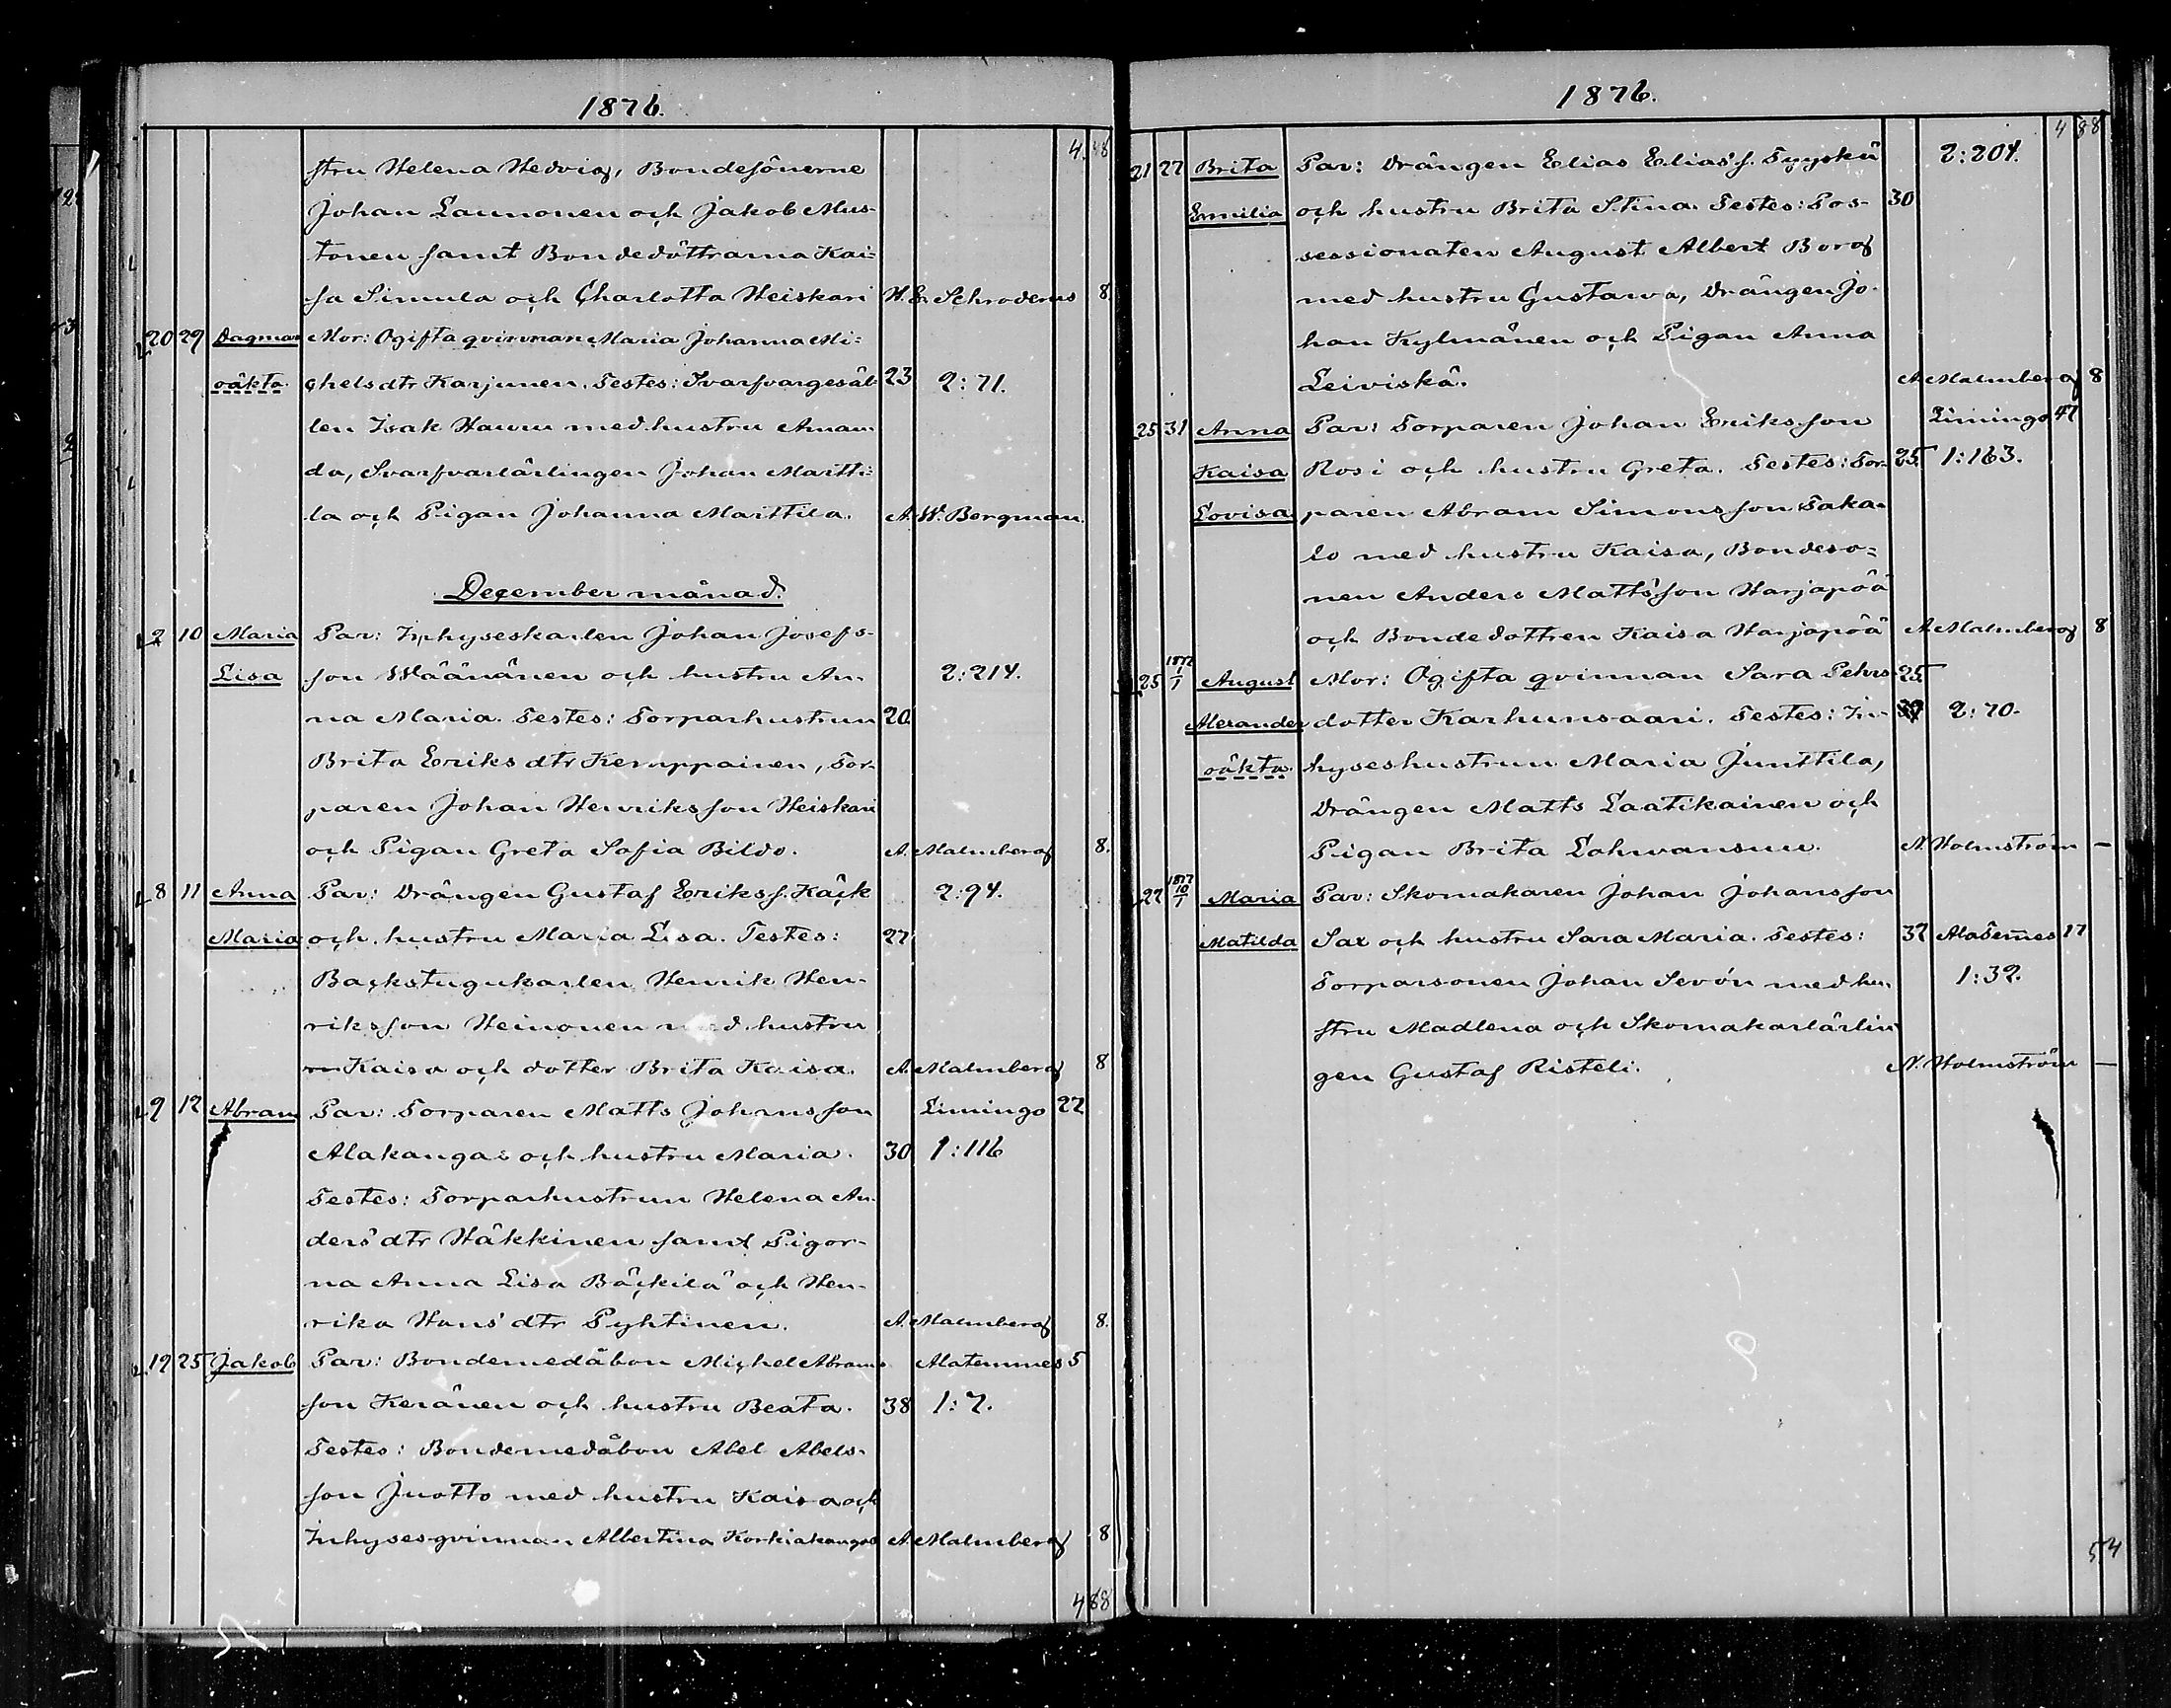 1876.
4. 48
stru Helena Hedvig, Bondesönerne
Johan Launonen och Jakob Mus-
tonen samt Bondedöttrarna Kai-
sa Simula och Charlotta Heiskari H. E. Schroderus 8.
20 29 Dagmar Mor: Ogifta qvinnan Maria Johanna Mi-
oäkta. chelsdtr Karjunen. Testes: Svarfvargesäl- 23 2:71.
len Isak Hauru med hustru Aman-
da, Svarfvarlärlingen Johan Martti-
la och Pigan Johanna Marttila. A. W. Bergman.
December månad.
2 10 Maria Par: Inhyseskarlen Johan Josefs-
Lisa son Wäänänen och hustru An- 2:214.
na Maria. Testes: Torparhustrun 20.
Brita Eriksdtr Kemppainen, Tor-
paren Johan Henriksson Heiskari
och Pigan Greta Sofia Bildo. A. Malmberg 8.
8 11 Anna Par: Drängen Gustaf Eriks s. Käck 2:94.
Maria och hustru Maria Lisa. Testes: 27
Backstugukarlen Henrik Hen-
riksson Heinonen med hustru
Kaisa och dotter Brita Kaisa. A. Malmberg 8
9 12 Abram Par: Torparen Matts Johansson Limingo 22
Alakangas och hustru Maria. 30 1:116
Testes: Torparhustrun Helena An-
ders dtr Häkkinen samt Pigor-
na Anna Lisa Bäckilä och Hen-
rika Hans dtr Pyhtinen. A. Malmberg 8.
19 25 Jakob Par: Bondemedåbon Michel Abrams- Alatemmes 5
son Keränen och hustru Beata. 38 1:7.
Testes: Bondemedåbon Abel Abels-
son Juotto med hustru Kaisa och
Inhysesqvinnan Albertina Korkiakangas A. Malmberg 8
4 88
1876.
4 88
21 27 Brita Par: Drängen Elias Elias s. Tyyskä 2:204.
Emilia och hustru Brita Stina. Testes: Pos- 30
sessionaten August Albert Borg
med hustru Gustava, Drängen Jo-
han Kylmänen och Pigan Anna
Leiviskä. A. Malmberg 8
25 31 Anna Par: Torparen Johan Eriksson Limingo 47
Kaisa Rosi och hustru Greta. Testes: Tor- 25. 1:163.
Lovisa paren Abram Simonsson Taka-
lo med hustru Kaisa, Bondeso-
nen Anders Mattsson Harjapää
och Bondedottren Kaisa Harjapää A. Malmberg 8
25 1877 1/1 August Mor: Ogifta qvinnan Sara Pehrs- 25
Alexander dotter Karhunsaari. Testes: In- 2:70.
oäkta. hyseshustrun Maria Junttila,
Drängen Matts Laatikainen och
Pigan Brita Lohwansuu. N. Holmström —
27 1877 10/1 Maria Par: Skomakaren Johan Johansson
Matilda Sax och hustru Sara Maria. Testes: 37 Alatem̄es 17
Torparsonen Johan Sevón med hu- 1:32.
stru Madlena och Skomakarlärlin-
gen Gustaf Risteli. N. Holmström —
54